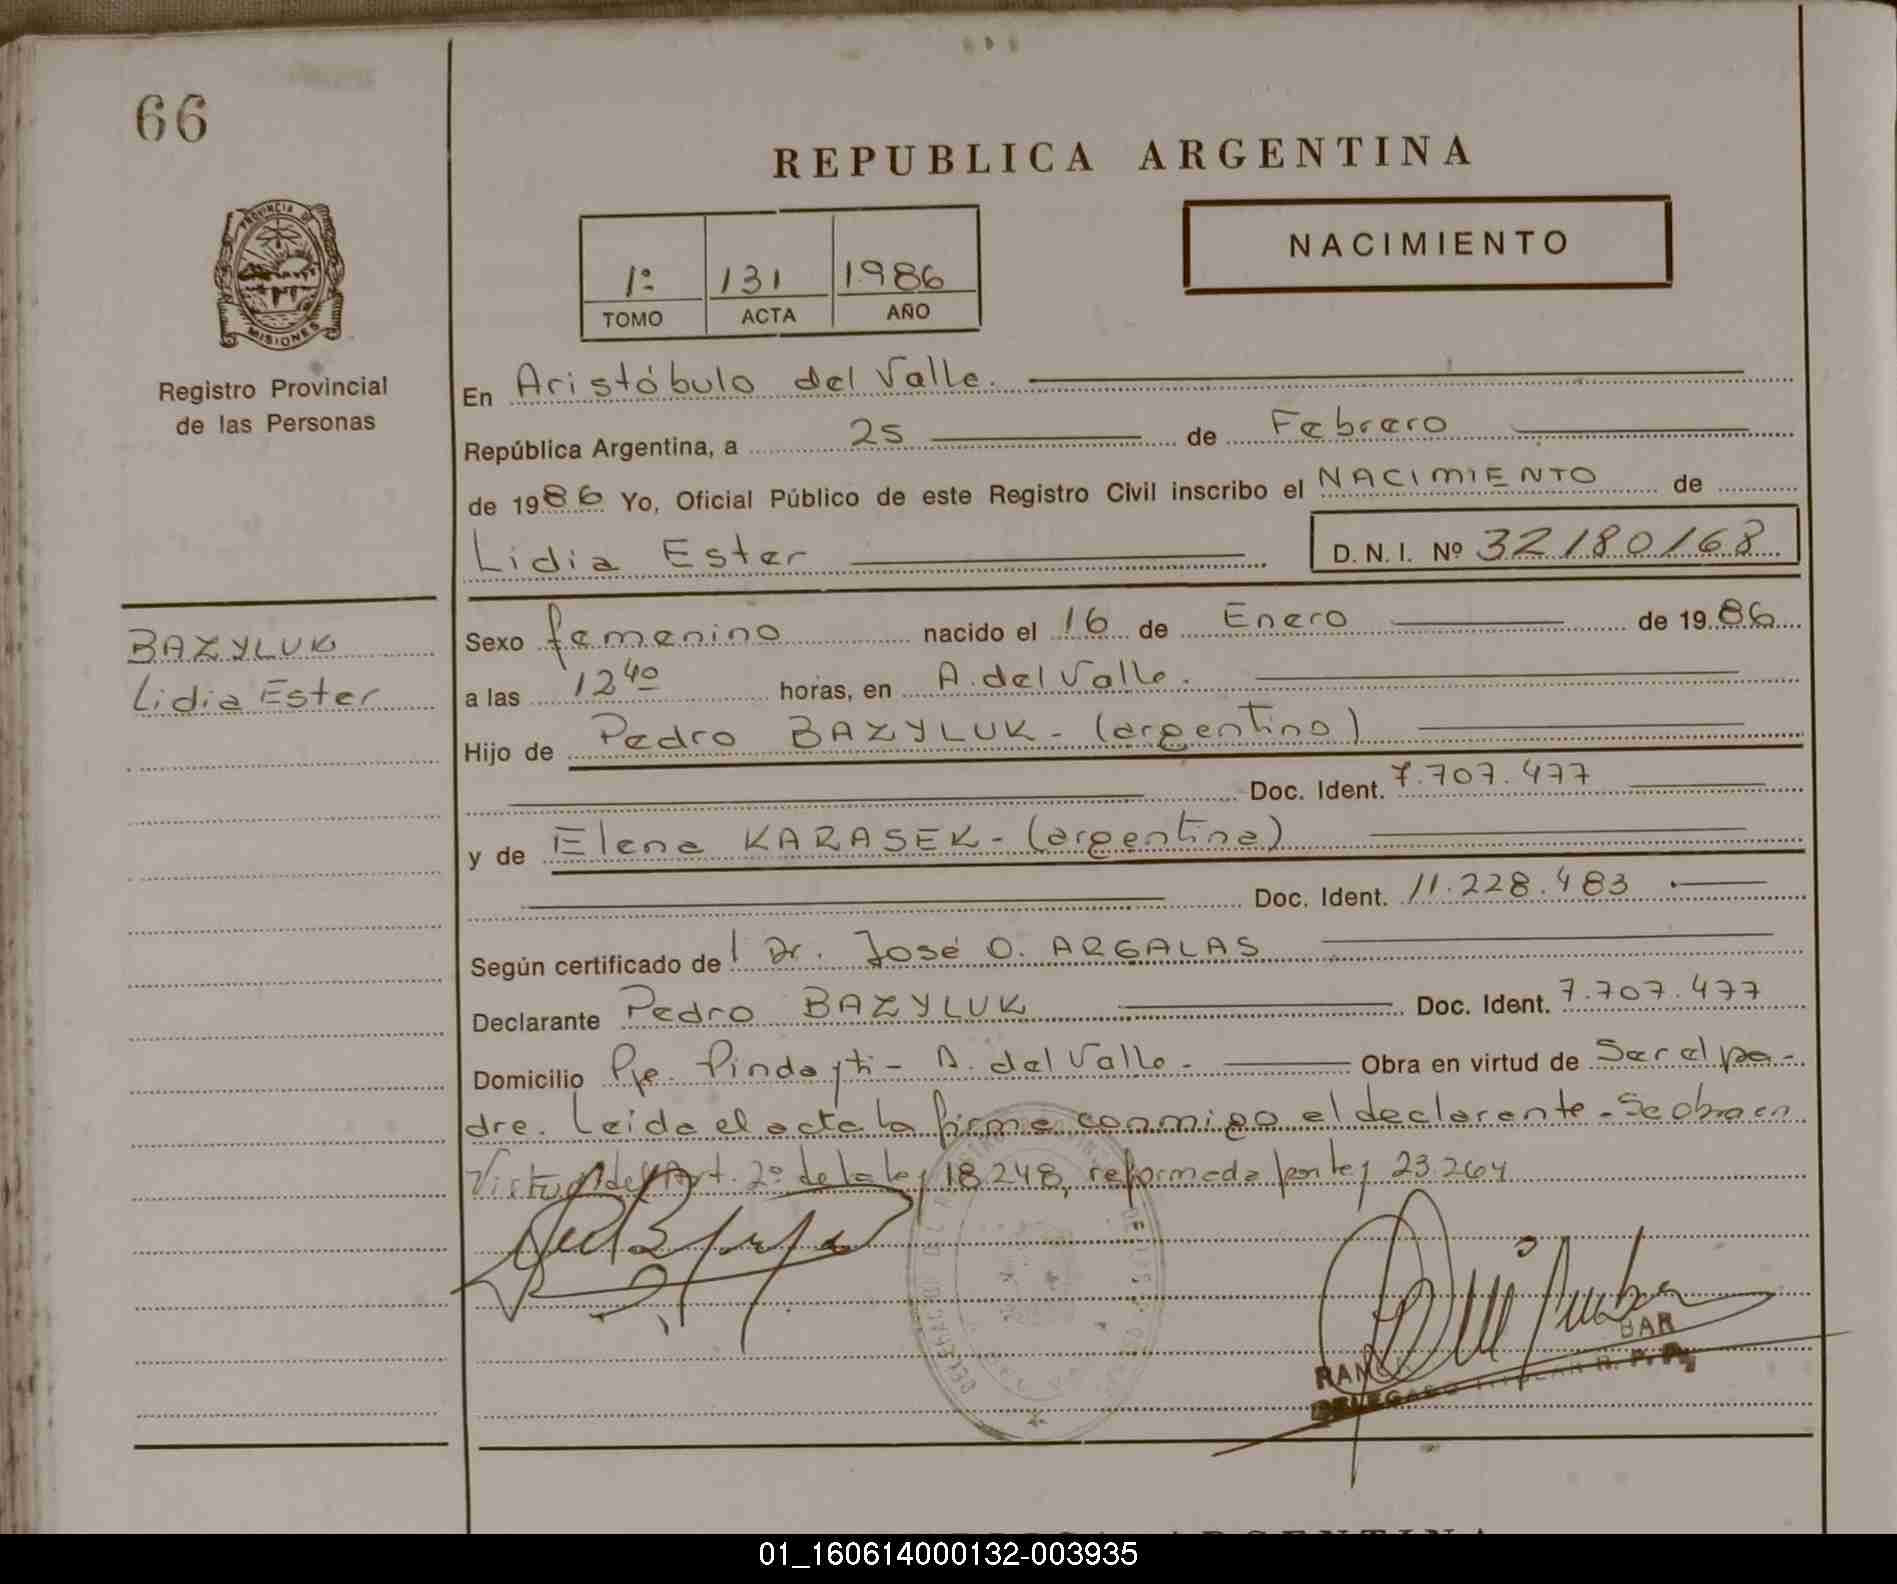 66
REPUBLICA ARGENTINA
PROVINCIA DE
MISIONES
Registro Provincial
de las Personas
1º 131 1986
TOMO ACTA AÑO
NACIMIENTO
En Aristóbulo del Valle.
República Argentina, a 25 de Febrero
de 1986 Yo, Oficial Público de este Registro Civil inscribo el NACIMIENTO de
Lidia Ester D. N. I. Nº 32180168
BAZYLUK
Lidia Ester
Sexo femenino nacido el 16 de Enero de 1986
a las 12 40 horas, en A. del Valle.
Hijo de Pedro BAZYLUK - (argentino)
Doc. Ident. 7.707.477
y de Elena KARASEK - (argentina)
Doc. Ident. 11.228.483
Según certificado del Dr. José O. ARGALAS
Declarante Pedro BAZYLUK Doc. Ident. 7.707.477
Domicilio Pje. Pindayti - A. del Valle - Obra en virtud de Ser el pa-
dre. Leida el acta la firma conmigo el declarante - Se obra en
Virtud del Art. 2º de la ley 18.248, reformada por ley 23.264
BAR
DELEGADO TITULAR R. P. P.
01_160614000132-003935